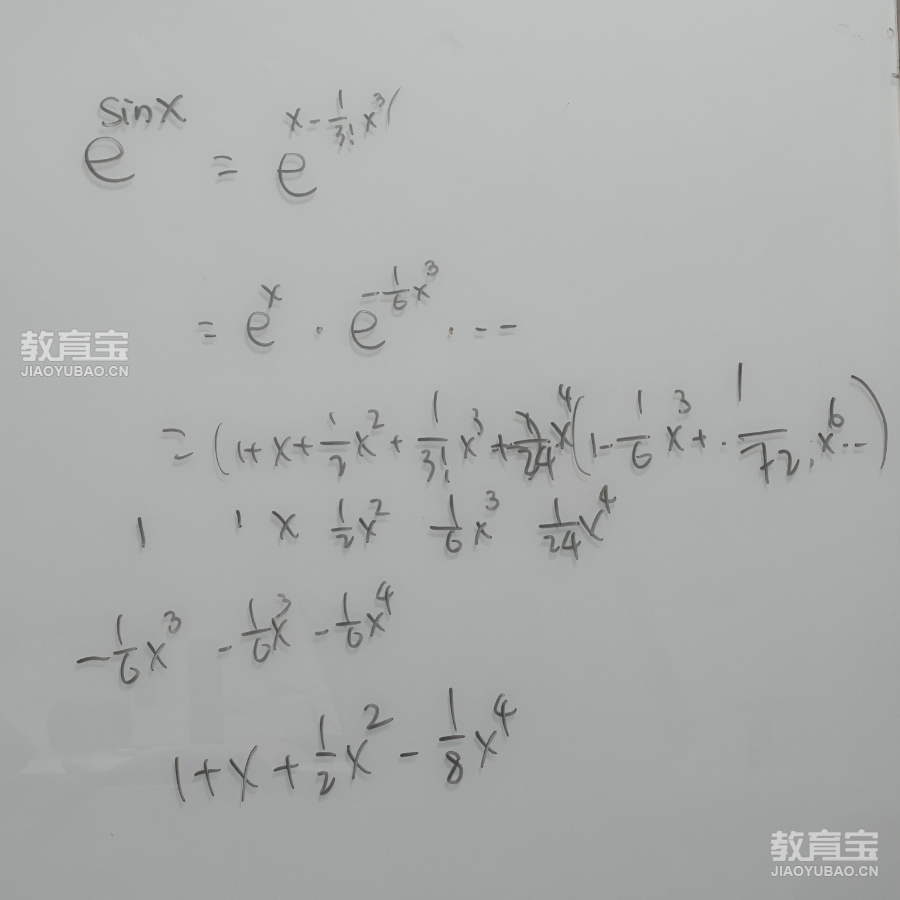 e^{sinx} = e^{x - \frac{1}{3!}x^3}
= e^x · e^{-\frac{1}{6}x^3} · ---
教育宝
JIAOYUBAO.CN
= (1+x+\frac{1}{2}x^2+\frac{1}{3!}x^3+\frac{1}{24}x^4)(1-\frac{1}{6}x^3+\frac{1}{72}x^6...)
1 1 x \frac{1}{2}x^2 \frac{1}{6}x^3 \frac{1}{24}x^4
-\frac{1}{6}x^3 -\frac{1}{6}x^3 -\frac{1}{6}x^4
1+x+\frac{1}{2}x^2-\frac{1}{8}x^4
教育宝
JIAOYUBAO.CN